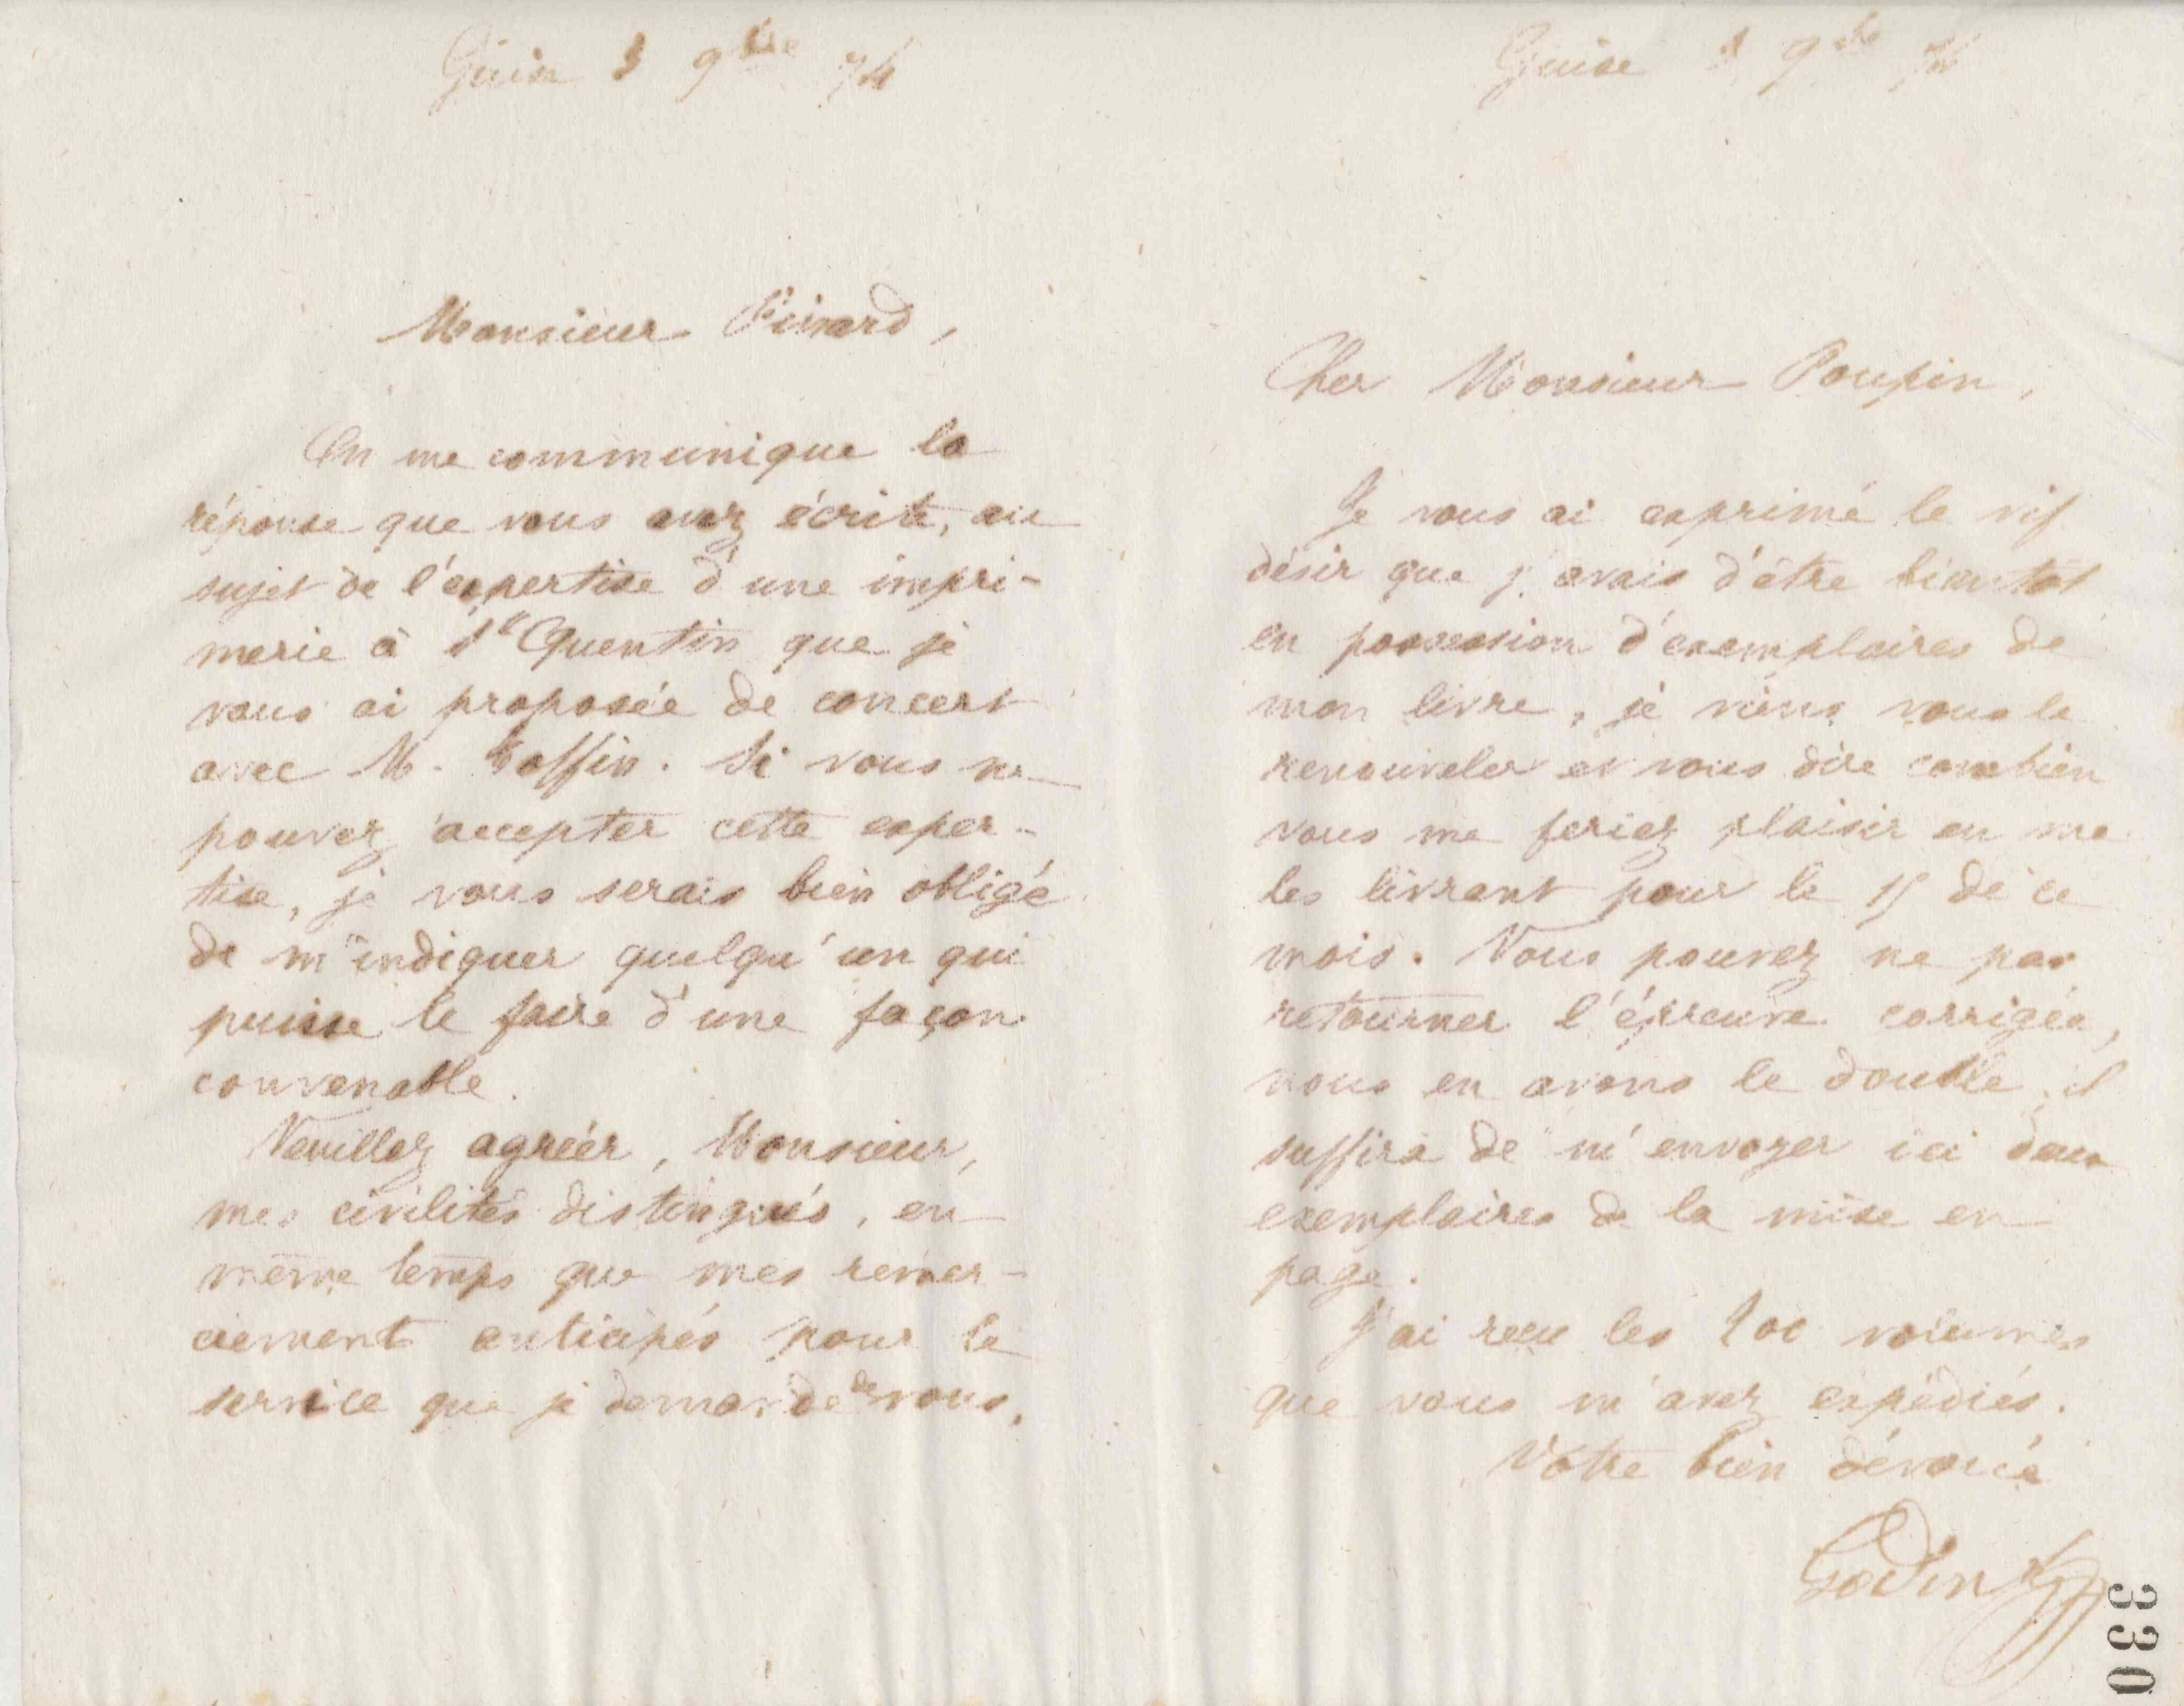 Guise 3 9bre 74
Monsieur Pinard,
On me communique la
réponse que vous avez écrite, au
sujet de l'expertise d'une impri-
merie à St Quentin que je
vous ai proposée de concert
avec M. Toffin. Si vous ne
pouvez accepter cette exper-
tise, je vous serais bien obligé
de m'indiquer quelqu'un qui
puisse le faire d'une façon
convenable.
Veuillez agréer, Monsieur,
mes civilités distingués, en
même temps que mes remer-
ciements anticipés pour le
service que je demande de vous.
Guise 3 9bre 74
Cher Monsieur Poupin,
Je vous ai exprimé le vif
désir que j'avais d'être bientot
en possession d'exemplaires de
mon livre, je viens vous le
renouveler et vous dire combien
vous me feriez plaisir en me
les livrant pour le 15 de ce
mois. Vous pouvez ne pas
retourner l'épreuve corrigée,
nous en avons le double, il
suffira de m'envoyer ici deux
exemplaires de la mise en
page.
J'ai reçu les 200 volumes
que vous m'avez expédiés.
Votre bien dévoué
Godin
330